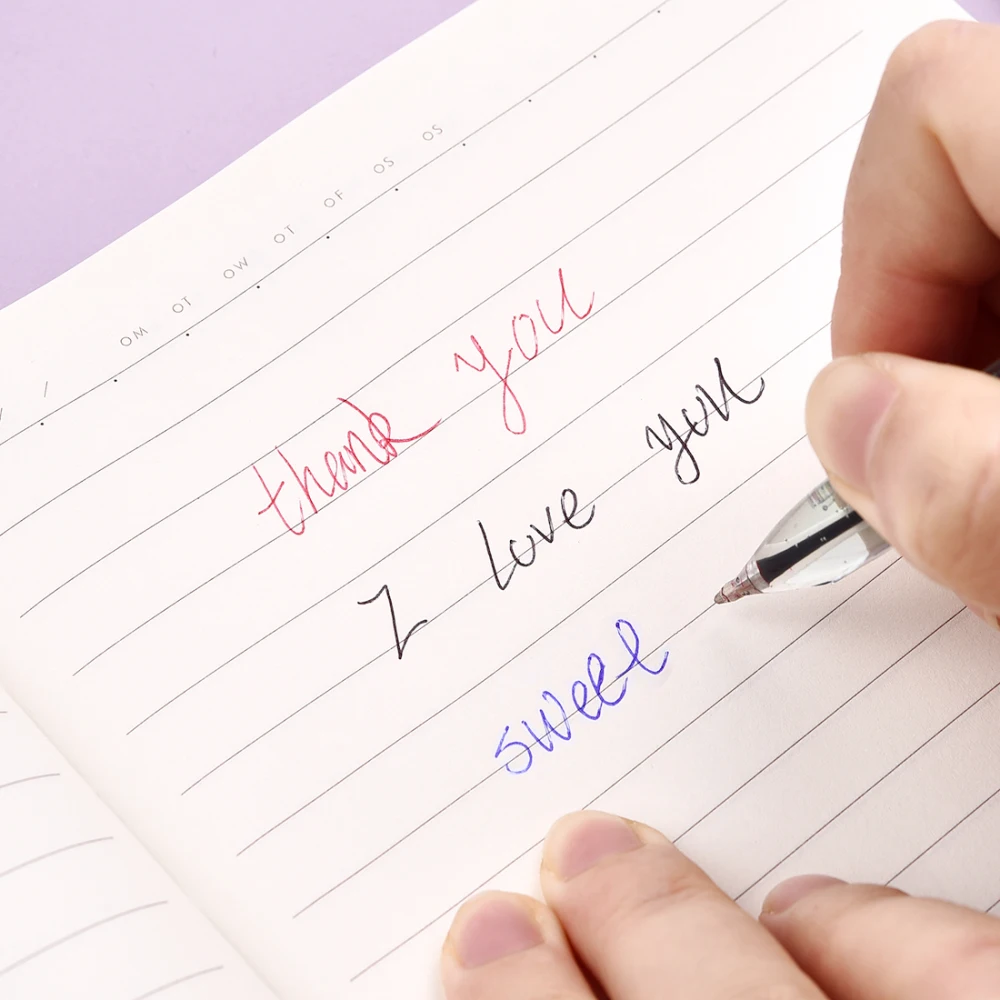 / / OM OT OW OT OF OS OS
thank you
I love you
sweet